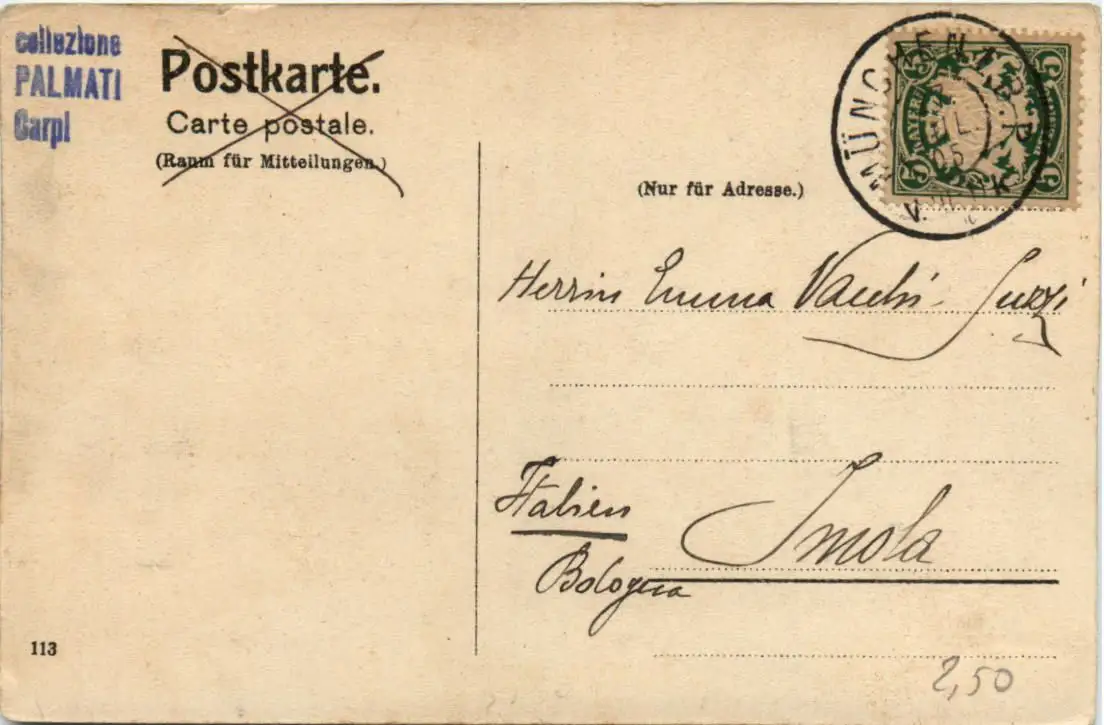 collezione
PALMATI
Carpi
Postkarte.
Carte postale.
(Raum für Mitteilungen.)
(Nur für Adresse.)
MÜNCHEN 1.B.P.K
V.
05
BAYERN
5 5
5 5
Herrin Emma Vacchi-Suzzi
Italien
Imola
Bologna
113
2,50